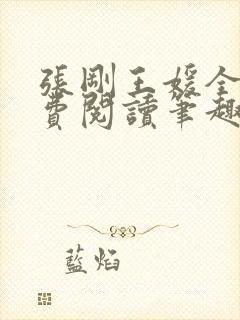 張剛王媛全
費閱讀筆趣
藍焰